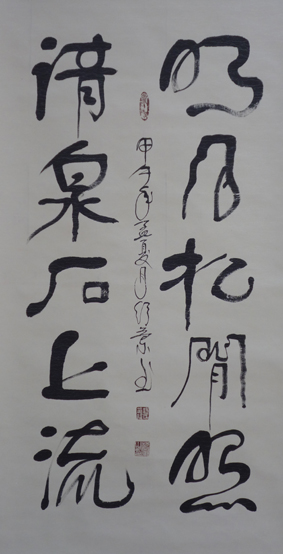 明月松閒照
甲午年孟夏月書
清泉石上流